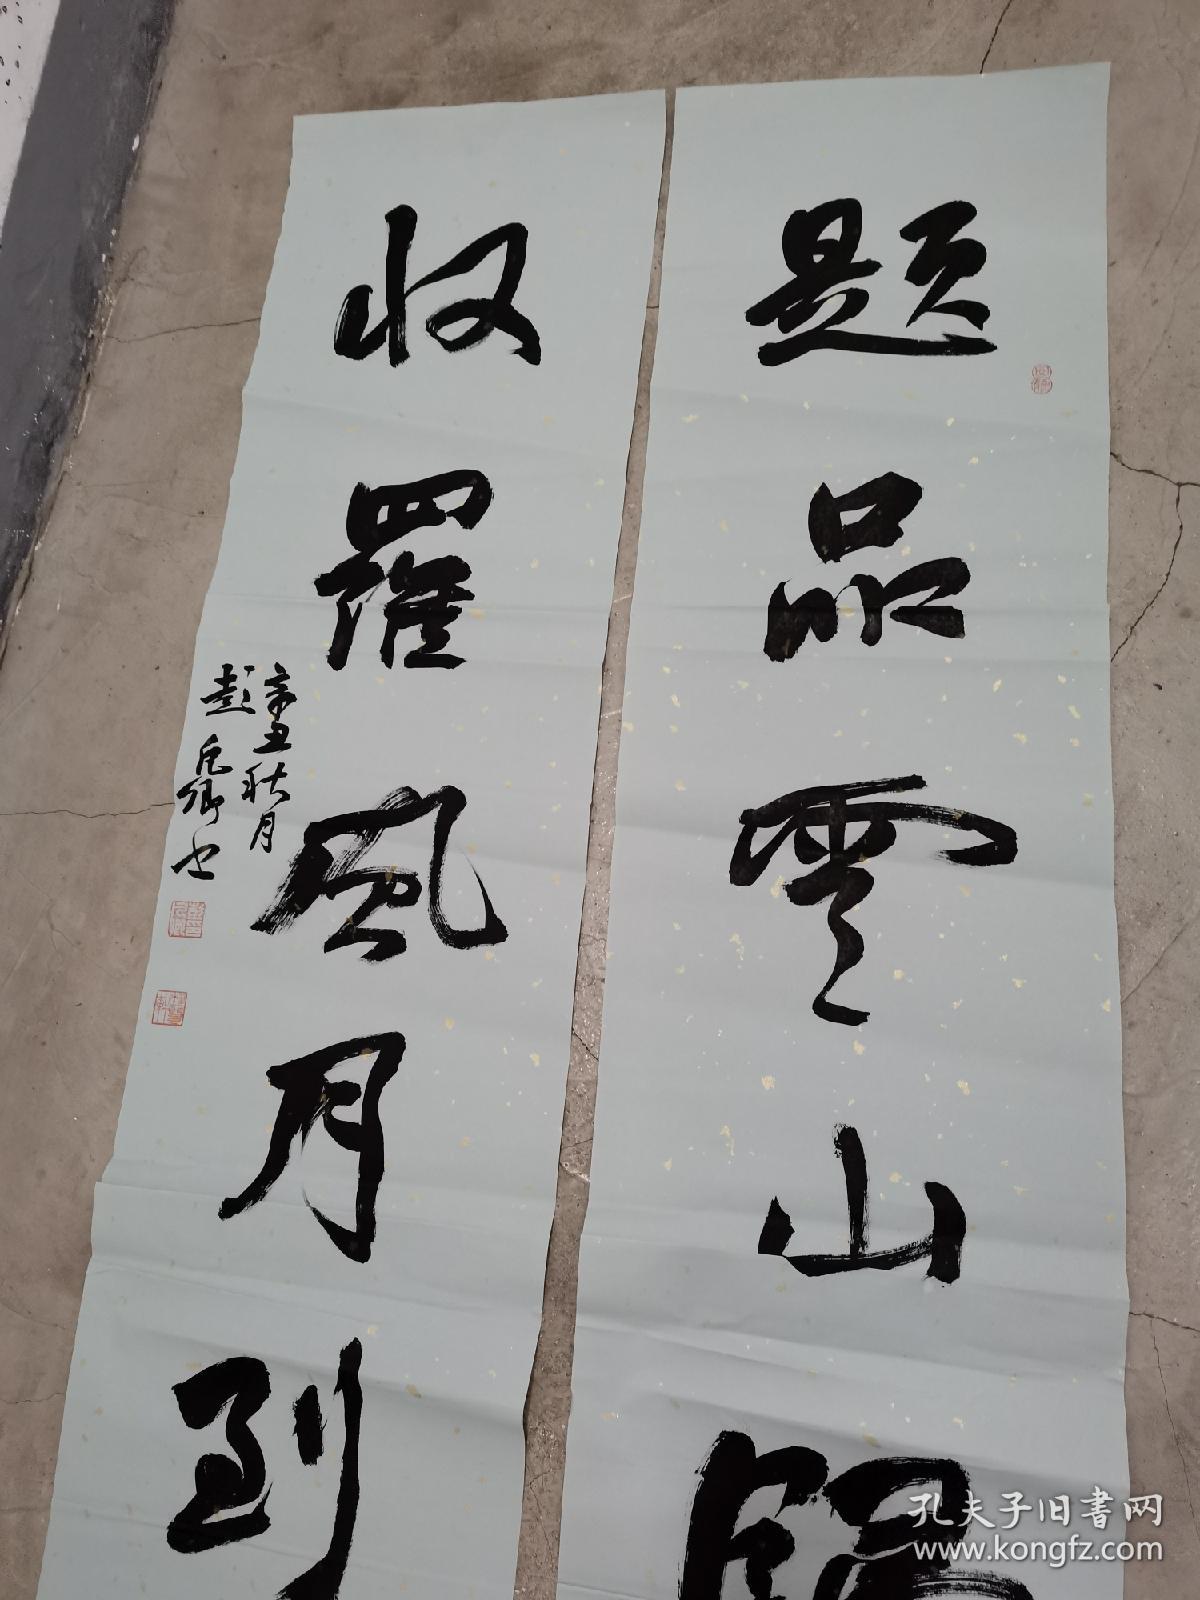 题品雲山歸
收羅風月到
辛丑秋月
彭
卿书
孔夫子旧書网
www.kongfz.com